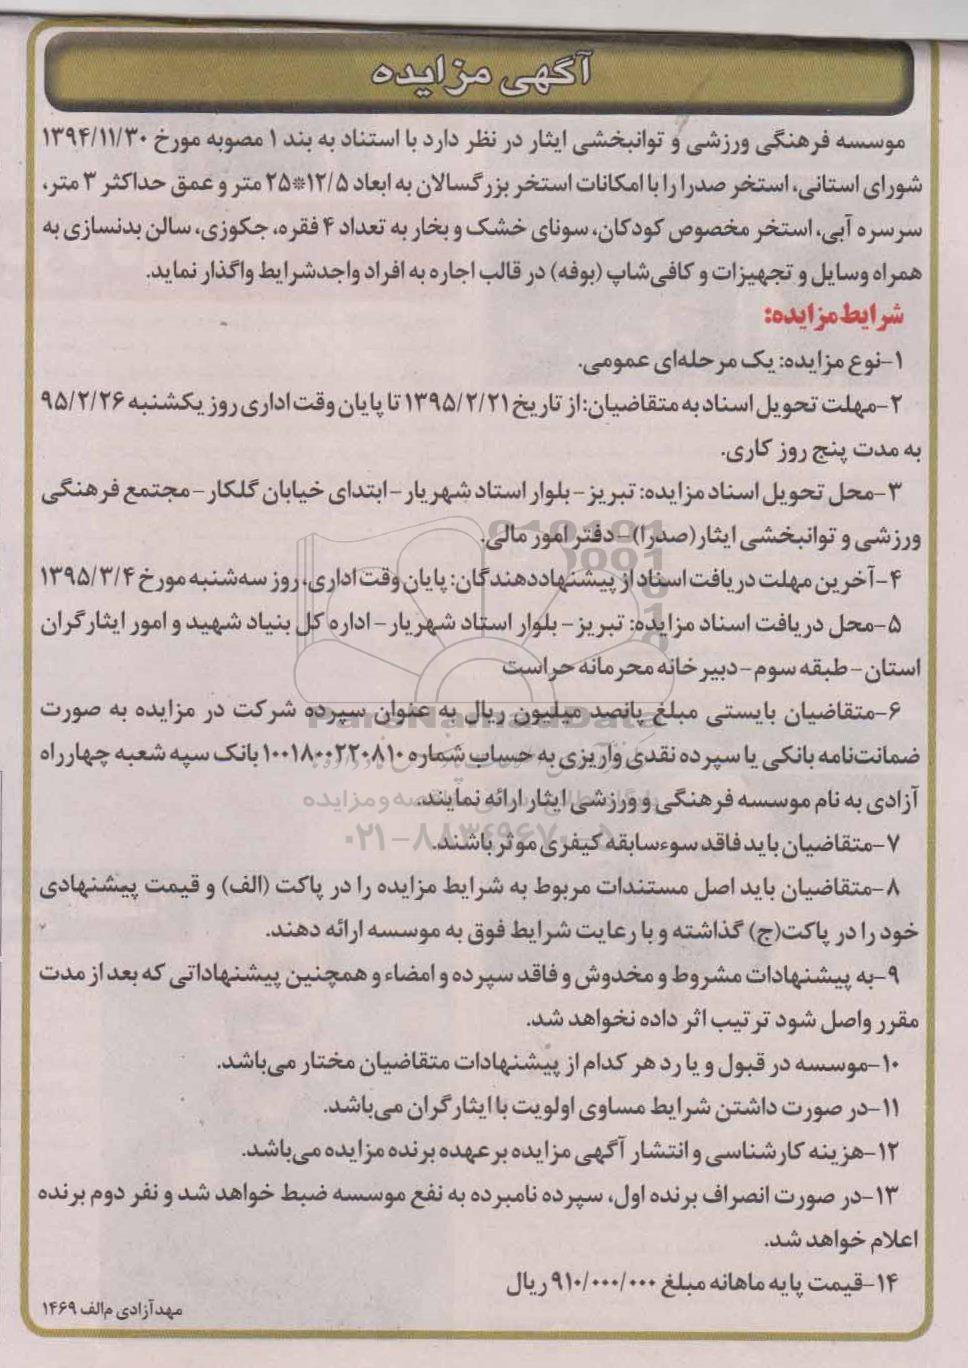 آگهی مزایده
موسسه فرهنگی ورزشی و توانبخشی ایثار در نظر دارد با استناد به بند ۱ مصوبه مورخ ۱۳۹۴/۱۱/۳۰
شورای استانی، استخر صدرا را با امکانات استخر بزرگسالان به ابعاد ۱۲/۵*۲۵ متر و عمق حداکثر ۳ متر،
سرسره آبی، استخر مخصوص کودکان، سونای خشک و بخار به تعداد ۴ فقره، جکوزی، سالن بدنسازی به
همراه وسایل و تجهیزات و کافی‌شاپ (بوفه) در قالب اجاره به افراد واجدشرایط واگذار نماید.
شرایط مزایده:
۱-نوع مزایده: یک مرحله‌ای عمومی.
۲-مهلت تحویل اسناد به متقاضیان: از تاریخ ۱۳۹۵/۲/۲۱ تا پایان وقت اداری روز یکشنبه ۹۵/۲/۲۶
به مدت پنج روز کاری.
۳-محل تحویل اسناد مزایده: تبریز - بلوار استاد شهریار - ابتدای خیابان گلکار - مجتمع فرهنگی
ورزشی و توانبخشی ایثار (صدرا) - دفتر امور مالی.
۴-آخرین مهلت دریافت اسناد از پیشنهاددهندگان: پایان وقت اداری، روز سه‌شنبه مورخ ۱۳۹۵/۳/۴
۵-محل دریافت اسناد مزایده: تبریز - بلوار استاد شهریار - اداره کل بنیاد شهید و امور ایثارگران
استان - طبقه سوم - دبیرخانه محرمانه حراست
۶-متقاضیان بایستی مبلغ پانصد میلیون ریال به عنوان سپرده شرکت در مزایده به صورت
ضمانت‌نامه بانکی یا سپرده نقدی واریزی به حساب شماره ۱۰۰۱۸۰۰۲۲۰۸۱۰ بانک سپه شعبه چهارراه
آزادی به نام موسسه فرهنگی و ورزشی ایثار ارائه نمایند.
۷-متقاضیان باید فاقد سوءسابقه کیفری موثر باشند.
۸-متقاضیان باید اصل مستندات مربوط به شرایط مزایده را در پاکت (الف) و قیمت پیشنهادی
خود را در پاکت (ج) گذاشته و با رعایت شرایط فوق به موسسه ارائه دهند.
۹-به پیشنهادات مشروط و مخدوش و فاقد سپرده و امضاء و همچنین پیشنهاداتی که بعد از مدت
مقرر واصل شود ترتیب اثر داده نخواهد شد.
۱۰-موسسه در قبول و یا رد هر کدام از پیشنهادات متقاضیان مختار می‌باشد.
۱۱-در صورت داشتن شرایط مساوی اولویت با ایثارگران می‌باشد.
۱۲-هزینه کارشناسی و انتشار آگهی مزایده بر عهده برنده مزایده می‌باشد.
۱۳-در صورت انصراف برنده اول، سپرده نامبرده به نفع موسسه ضبط خواهد شد و نفر دوم برنده
اعلام خواهد شد.
۱۴-قیمت پایه ماهانه مبلغ ۹۱۰/۰۰۰/۰۰۰ ریال
مهد آزادی م الف ۱۴۶۹